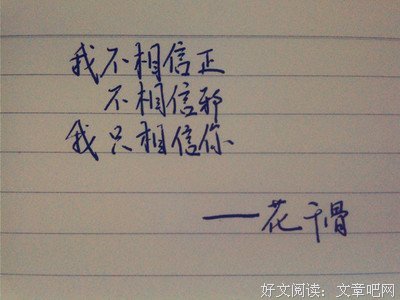 我不相信正
不相信邪
我只相信你
——花千骨
好文阅读：文章吧网